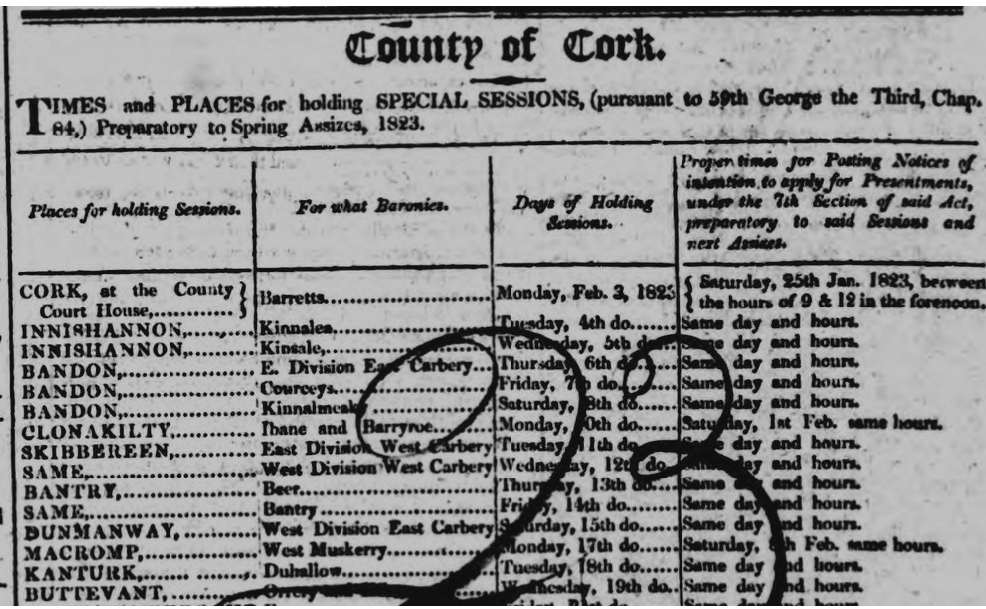 County of Cork.
TIMES and PLACES for holding SPECIAL SESSIONS, (pursuant to 59th George the Third, Chap.
84,) Preparatory to Spring Assizes, 1823.
Places for holding Sessions.
For what Baronies.
Days of Holding
Sessions.
Proper times for Posting Notices of
intention to apply for Presentments,
under the 7th Section of said Act,
preparatory to said Sessions and
next Assizes.
CORK, at the County } Barretts............ Monday, Feb. 3, 1823 { Saturday, 25th Jan. 1823, between
Court House,............ } { the hours of 9 & 12 in the forenoon.
INNISHANNON,......... Kinnalea............ Tuesday, 4th do....... Same day and hours.
INNISHANNON,......... Kinsale,............ Wednesday, 5th do... Same day and hours.
BANDON,............ E. Division East Carbery... Thursday 6th do...... Same day and hours.
BANDON,............ Courceys,............ Friday, 7th do....... Same day and hours.
BANDON,............ Kinnalmeaky............ Saturday, 8th do...... Same day and hours.
CLONAKILTY,......... Ibane and Barryroe......... Monday, 10th do...... Saturday, 1st Feb. same hours.
SKIBBEREEN,......... East Division West Carbery Tuesday, 11th do...... Same day and hours.
SAME,............ West Division West Carbery Wednesday, 12th do Same day and hours.
BANTRY,............ Beer............ Thursday, 13th do.... Same day and hours.
SAME,............ Bantry............ Friday, 14th do....... Same day and hours.
DUNMANWAY,......... West Division East Carbery Saturday, 15th do..... Same day and hours.
MACROMP,............ West Muskerry............ Monday, 17th do...... Saturday, 8th Feb. same hours.
KANTURK,............ Duhallow............ Tuesday, 18th do...... Same day and hours.
BUTTEVANT,......... Orrery and Wednesday, 19th do... Same day and hours.